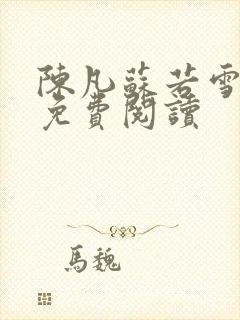 陳凡蘇若雪
免費閱讀
馬魏